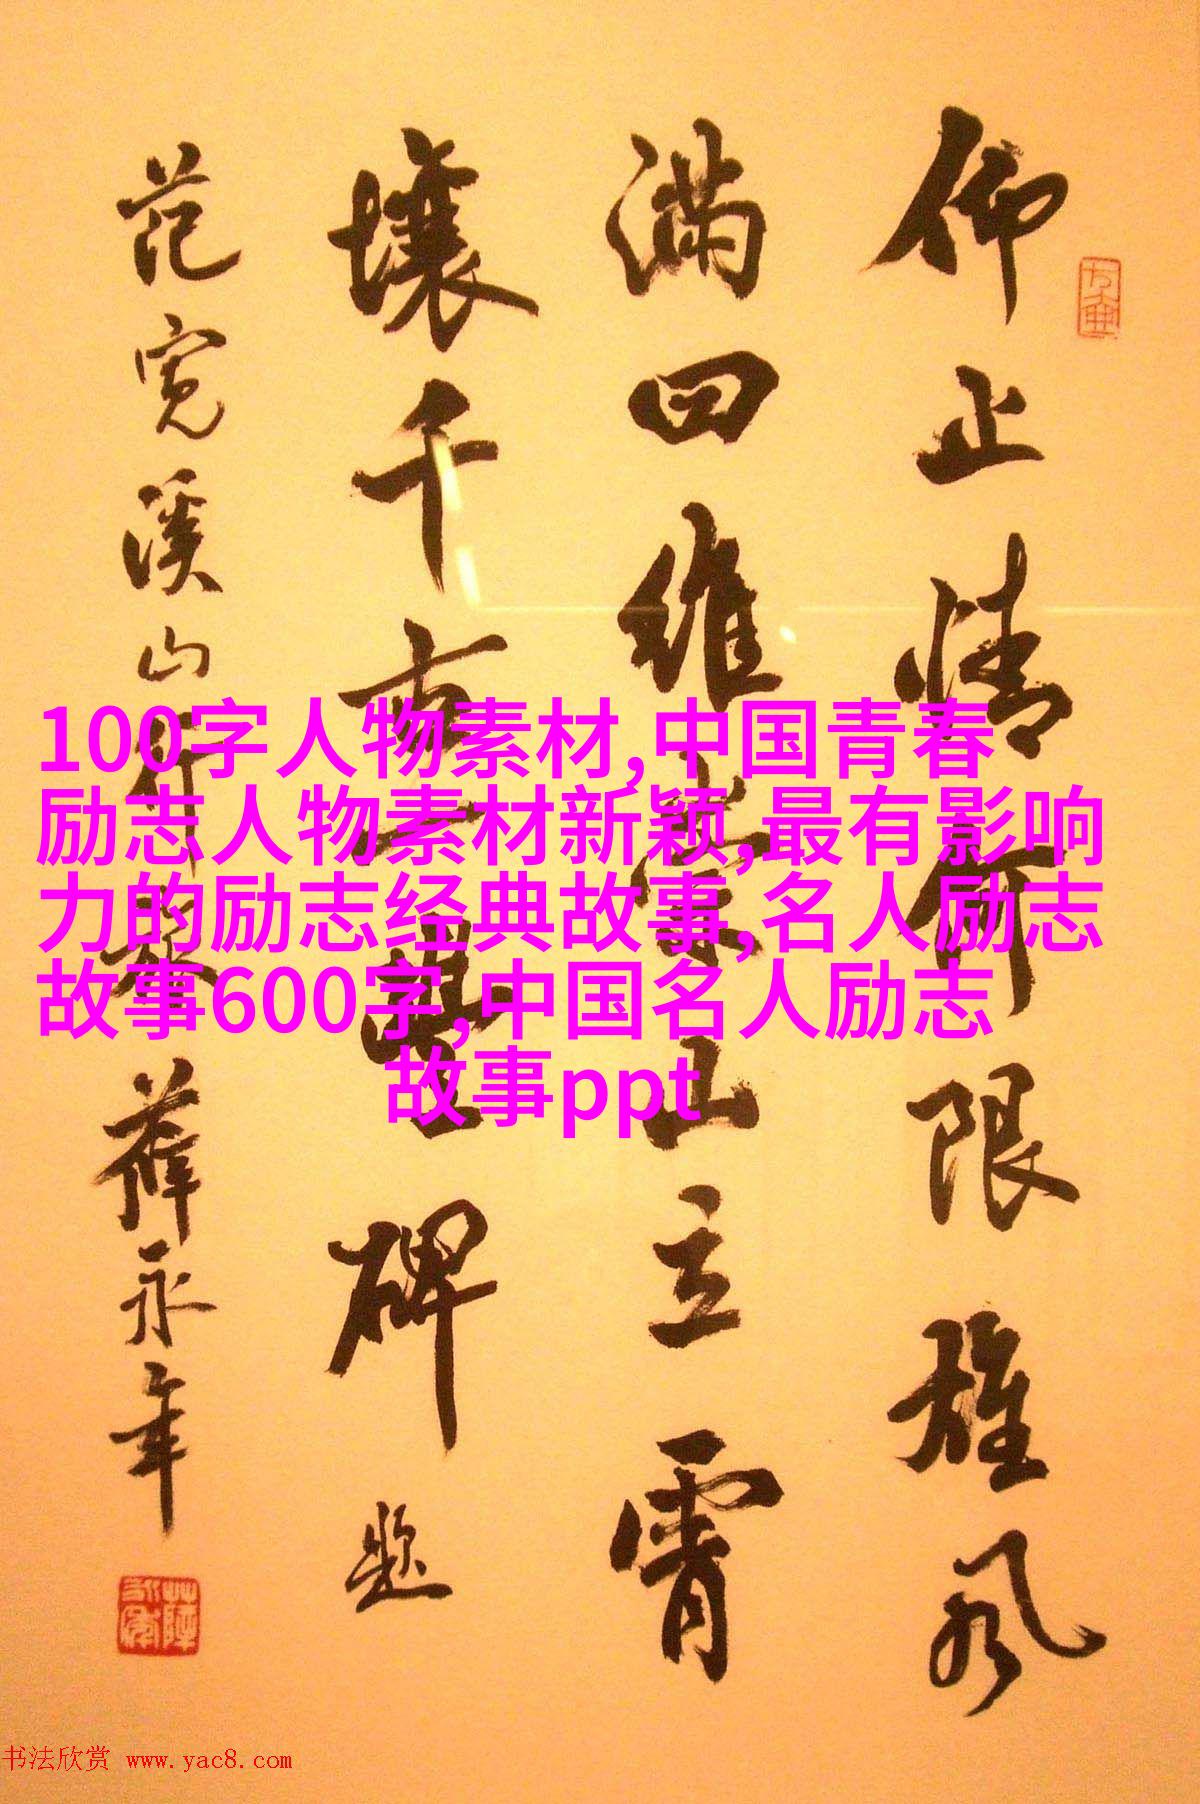 仰止情何限雄风
满四维崇山立霄
壤千古一豐碑 题
范宽溪山行旅 薛永年
100字人物素材,中国青春
励志人物素材新颖,最有影响
力的励志经典故事,名人励志
故事600字,中国名人励志
故事ppt
书法欣赏 www.yac8.com